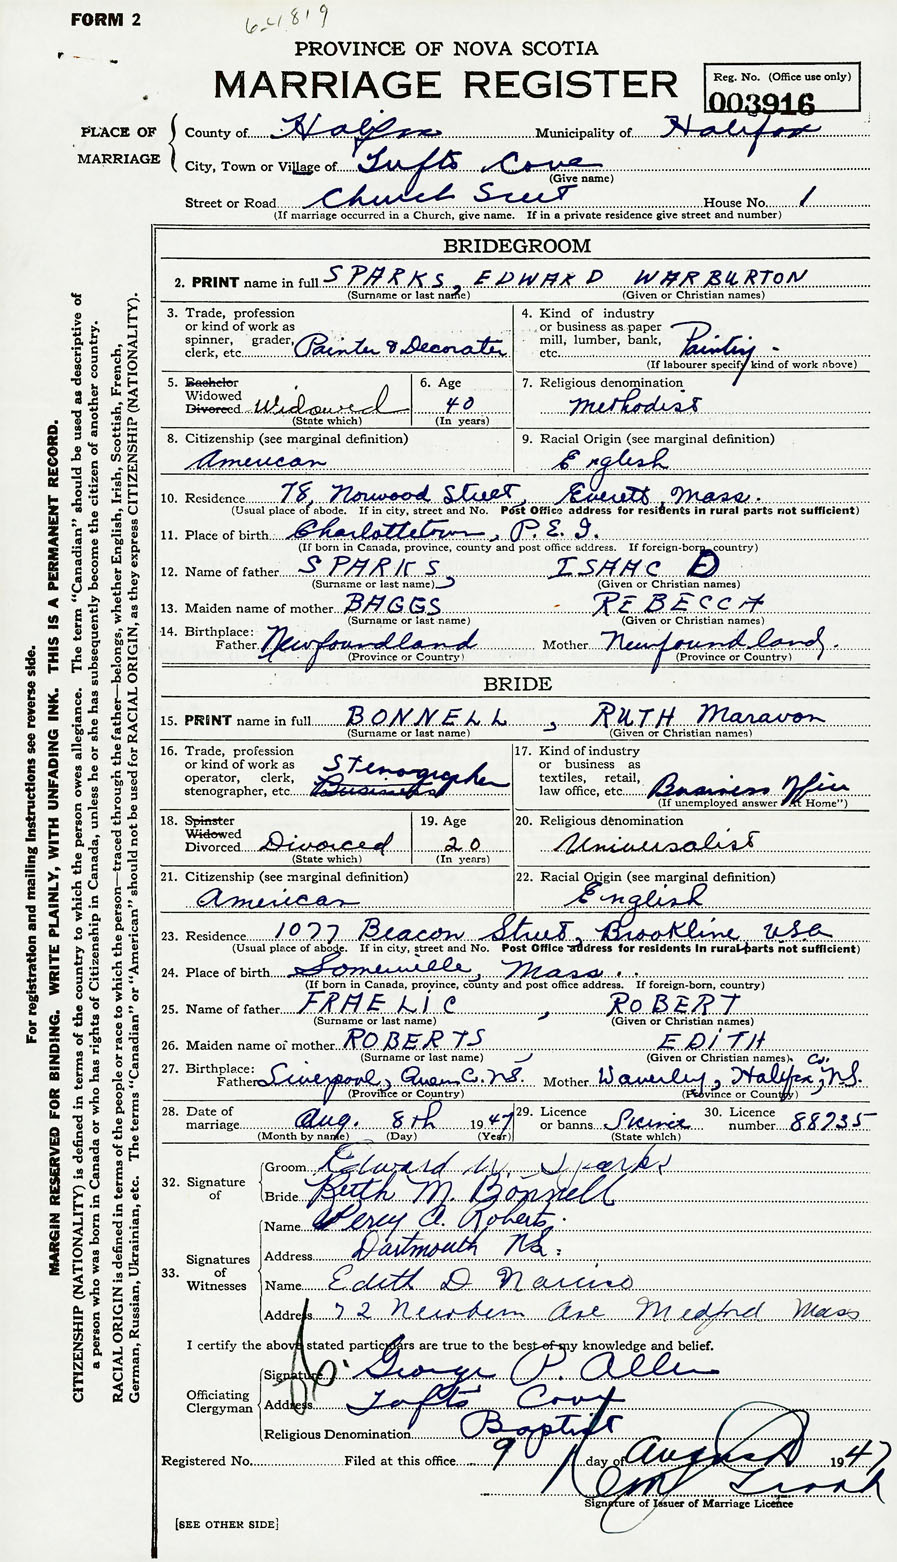 FORM 2
64819
PROVINCE OF NOVA SCOTIA
MARRIAGE REGISTER
Reg. No. (Office use only)
003916
PLACE OF MARRIAGE
County of Halifax Municipality of Halifax
City, Town or Village of Tufts Cove
(Give name)
Street or Road Church Street House No. 1
(If marriage occurred in a Church, give name. If in a private residence give street and number)
BRIDEGROOM
2. PRINT name in full SPARKS, EDWARD WARBURTON
(Surname or last name) (Given or Christian names)
3. Trade, profession or kind of work as spinner, grader, clerk, etc. Painter & Decorater
4. Kind of industry or business as paper mill, lumber, bank, etc. Painting.
(If labourer specify kind of work above)
5. Bachelor Widowed Divorced Widowed
(State which)
6. Age 40
(In years)
7. Religious denomination Methodist
8. Citizenship (see marginal definition) American
9. Racial Origin (see marginal definition) English
10. Residence 78, Norwood Street, Everett, Mass.
(Usual place of abode. If in city, street and No. Post Office address for residents in rural parts not sufficient)
11. Place of birth Charlottetown, P.E.I.
(If born in Canada, province, county and post office address. If foreign-born, country)
12. Name of father SPARKS, ISAAC D
(Surname or last name) (Given or Christian names)
13. Maiden name of mother BAGGS REBECCA
(Surname or last name) (Given or Christian names)
14. Birthplace: Father Newfoundland Mother Newfoundland.
(Province or Country) (Province or Country)
BRIDE
15. PRINT name in full BONNELL, RUTH Maravon
(Surname or last name) (Given or Christian names)
16. Trade, profession or kind of work as operator, clerk, stenographer, etc. Stenographer Business
17. Kind of industry or business as textiles, retail, law office, etc. Business Office
(If unemployed answer "At Home")
18. Spinster Widowed Divorced Divorced
(State which)
19. Age 20
(In years)
20. Religious denomination Universalist
21. Citizenship (see marginal definition) American
22. Racial Origin (see marginal definition) English
23. Residence 1077 Beacon Street, Brookline USA
(Usual place of abode. If in city, street and No. Post Office address for residents in rural parts not sufficient)
24. Place of birth Somerville, Mass..
(If born in Canada, province, county and post office address. If foreign-born, country)
25. Name of father FRAELIC, ROBERT
(Surname or last name) (Given or Christian names)
26. Maiden name of mother ROBERTS, EDITH
(Surname or last name) (Given or Christian names)
27. Birthplace: Father Liverpool, Queen C. N.S. Mother Waverley, Halifax, Co. N.S.
(Province or Country) (Province or Country)
28. Date of marriage Aug. 8th 1947
(Month by name) (Day) (Year)
29. Licence or banns
(State which)
30. Licence number 88735
32. Signature of
Groom Edward W. Sparks
Bride Ruth M. Bonnell
33. Signatures of Witnesses
Name Percy A. Roberts.
Address Dartmouth N.S.
Name Edith D Narciso
Address 72 Newbern Ave Medford Mass
I certify the above stated particulars are true to the best of my knowledge and belief.
Officiating Clergyman
Signature George P. Allen
Address Tufts Cove
Religious Denomination Baptist
Registered No. Filed at this office 9 day of August 1947
Signature of Issuer of Marriage Licence
[SEE OTHER SIDE]
For registration and mailing instructions see reverse side.
MARGIN RESERVED FOR BINDING. WRITE PLAINLY, WITH UNFADING INK. THIS IS A PERMANENT RECORD.
CITIZENSHIP (NATIONALITY) is defined in terms of the country to which the person owes allegiance. The term "Canadian" should be used as descriptive of
a person who was born in Canada or who has rights of Citizenship in Canada, unless he or she has subsequently become the citizen of another country.
RACIAL ORIGIN is defined in terms of the people or race to which the person—traced through the father—belongs, whether English, Irish, Scottish, French,
German, Russian, Ukrainian, etc. The terms "Canadian" or "American" should not be used for RACIAL ORIGIN, as they express CITIZENSHIP (NATIONALITY).